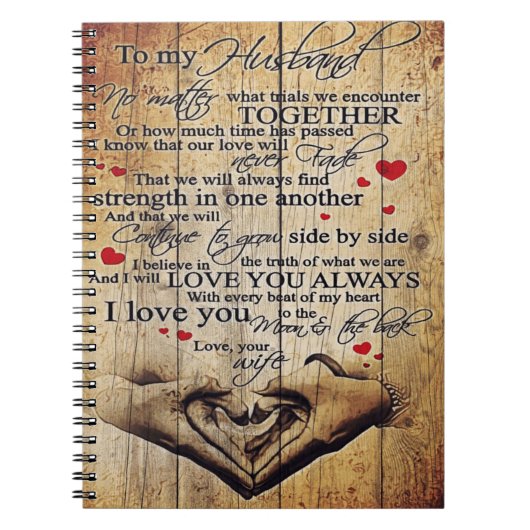 To my Husband
No matter what trials we encounter
TOGETHER
Or how much time has passed
I know that our love will
never Fade
That we will always find
strength in one another
And that we will
Continue to grow side by side
I believe in the truth of what we are
And I will LOVE YOU ALWAYS
With every beat of my heart
I love you to the
Moon & the back
Love, your
wife